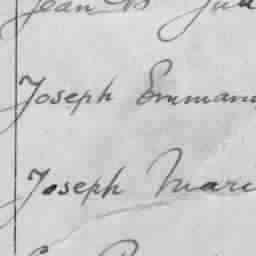 Jean B
Joseph Emmanu
Joseph Marc